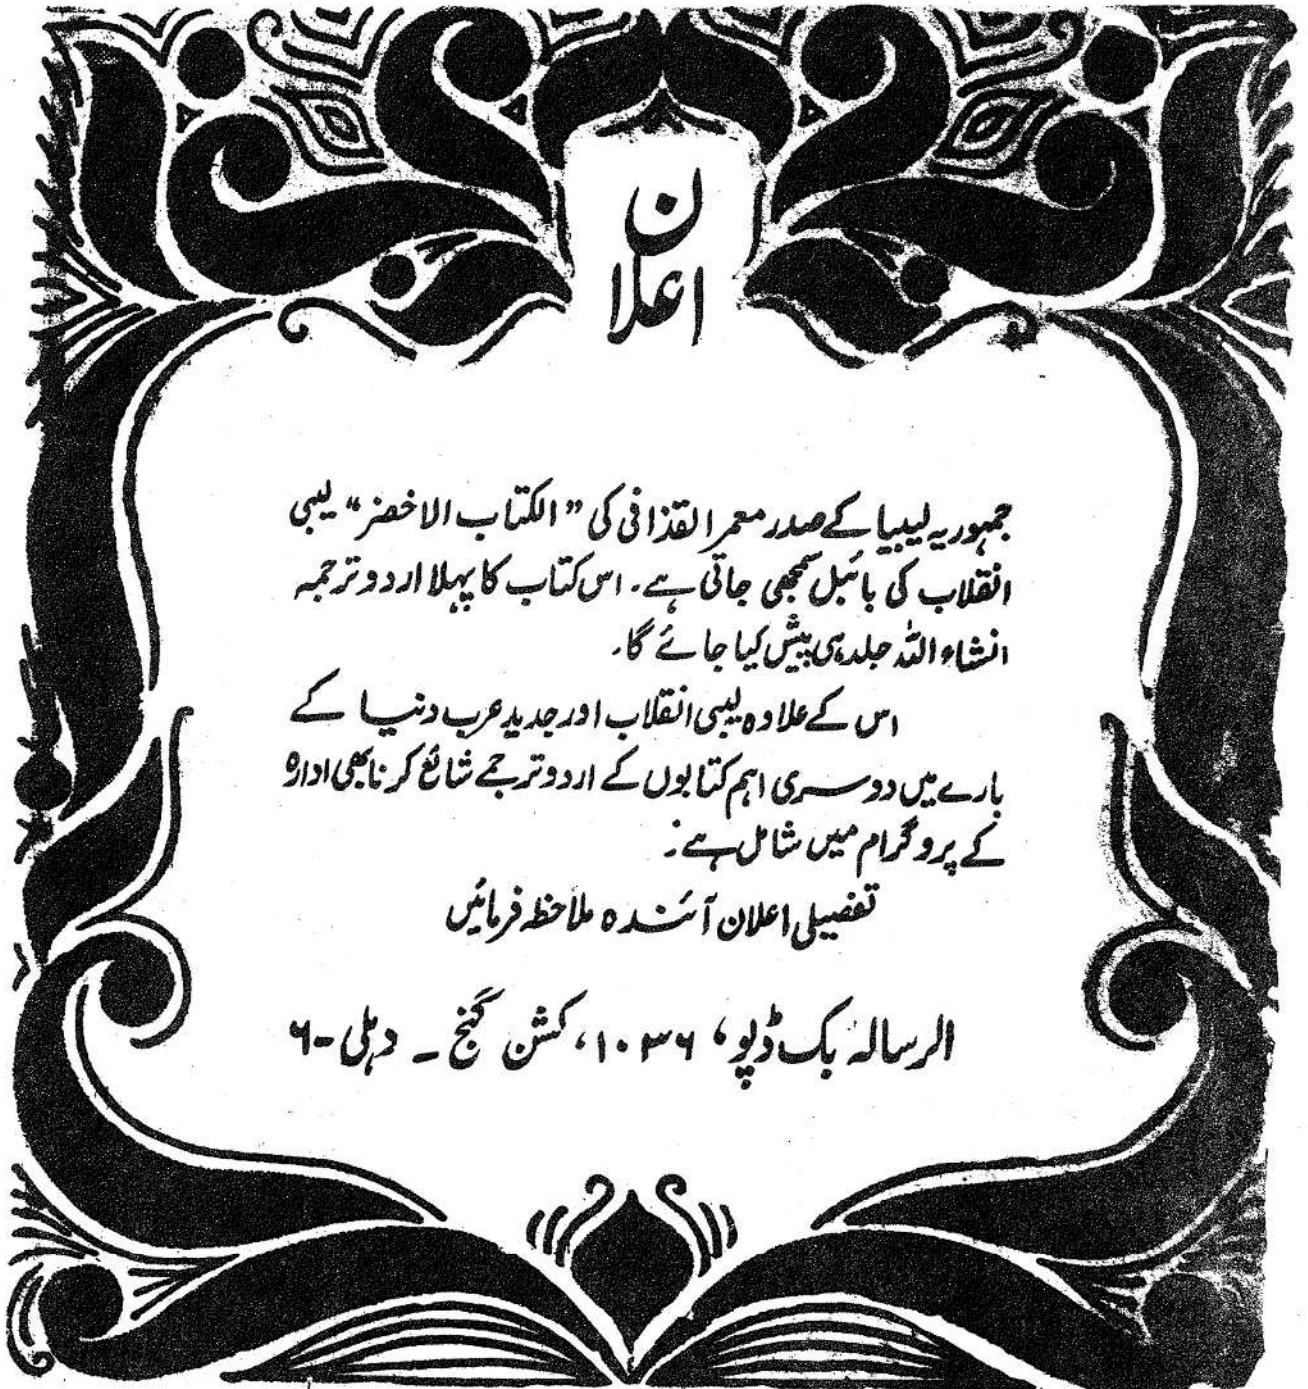 اعلان
جمہوریہ لیبیا کے صدر معمر القذافی کی "الکتاب الاخضر" لیبی
انقلاب کی بائبل سمجھی جاتی ہے. اس کتاب کا پہلا اردو ترجمہ
انشاء اللہ جلد ہی پیش کیا جائے گا.
اس کے علاوہ لیبی انقلاب اور جدید عرب دنیا کے
بارے میں دوسری اہم کتابوں کے اردو ترجمے شائع کرنا بھی ادارہ
کے پروگرام میں شامل ہے:
تفصیلی اعلان آئندہ ملاحظہ فرمائیں
الرسالہ بک ڈپو، ۱۰۳۶، کشن گنج - دہلی-۶